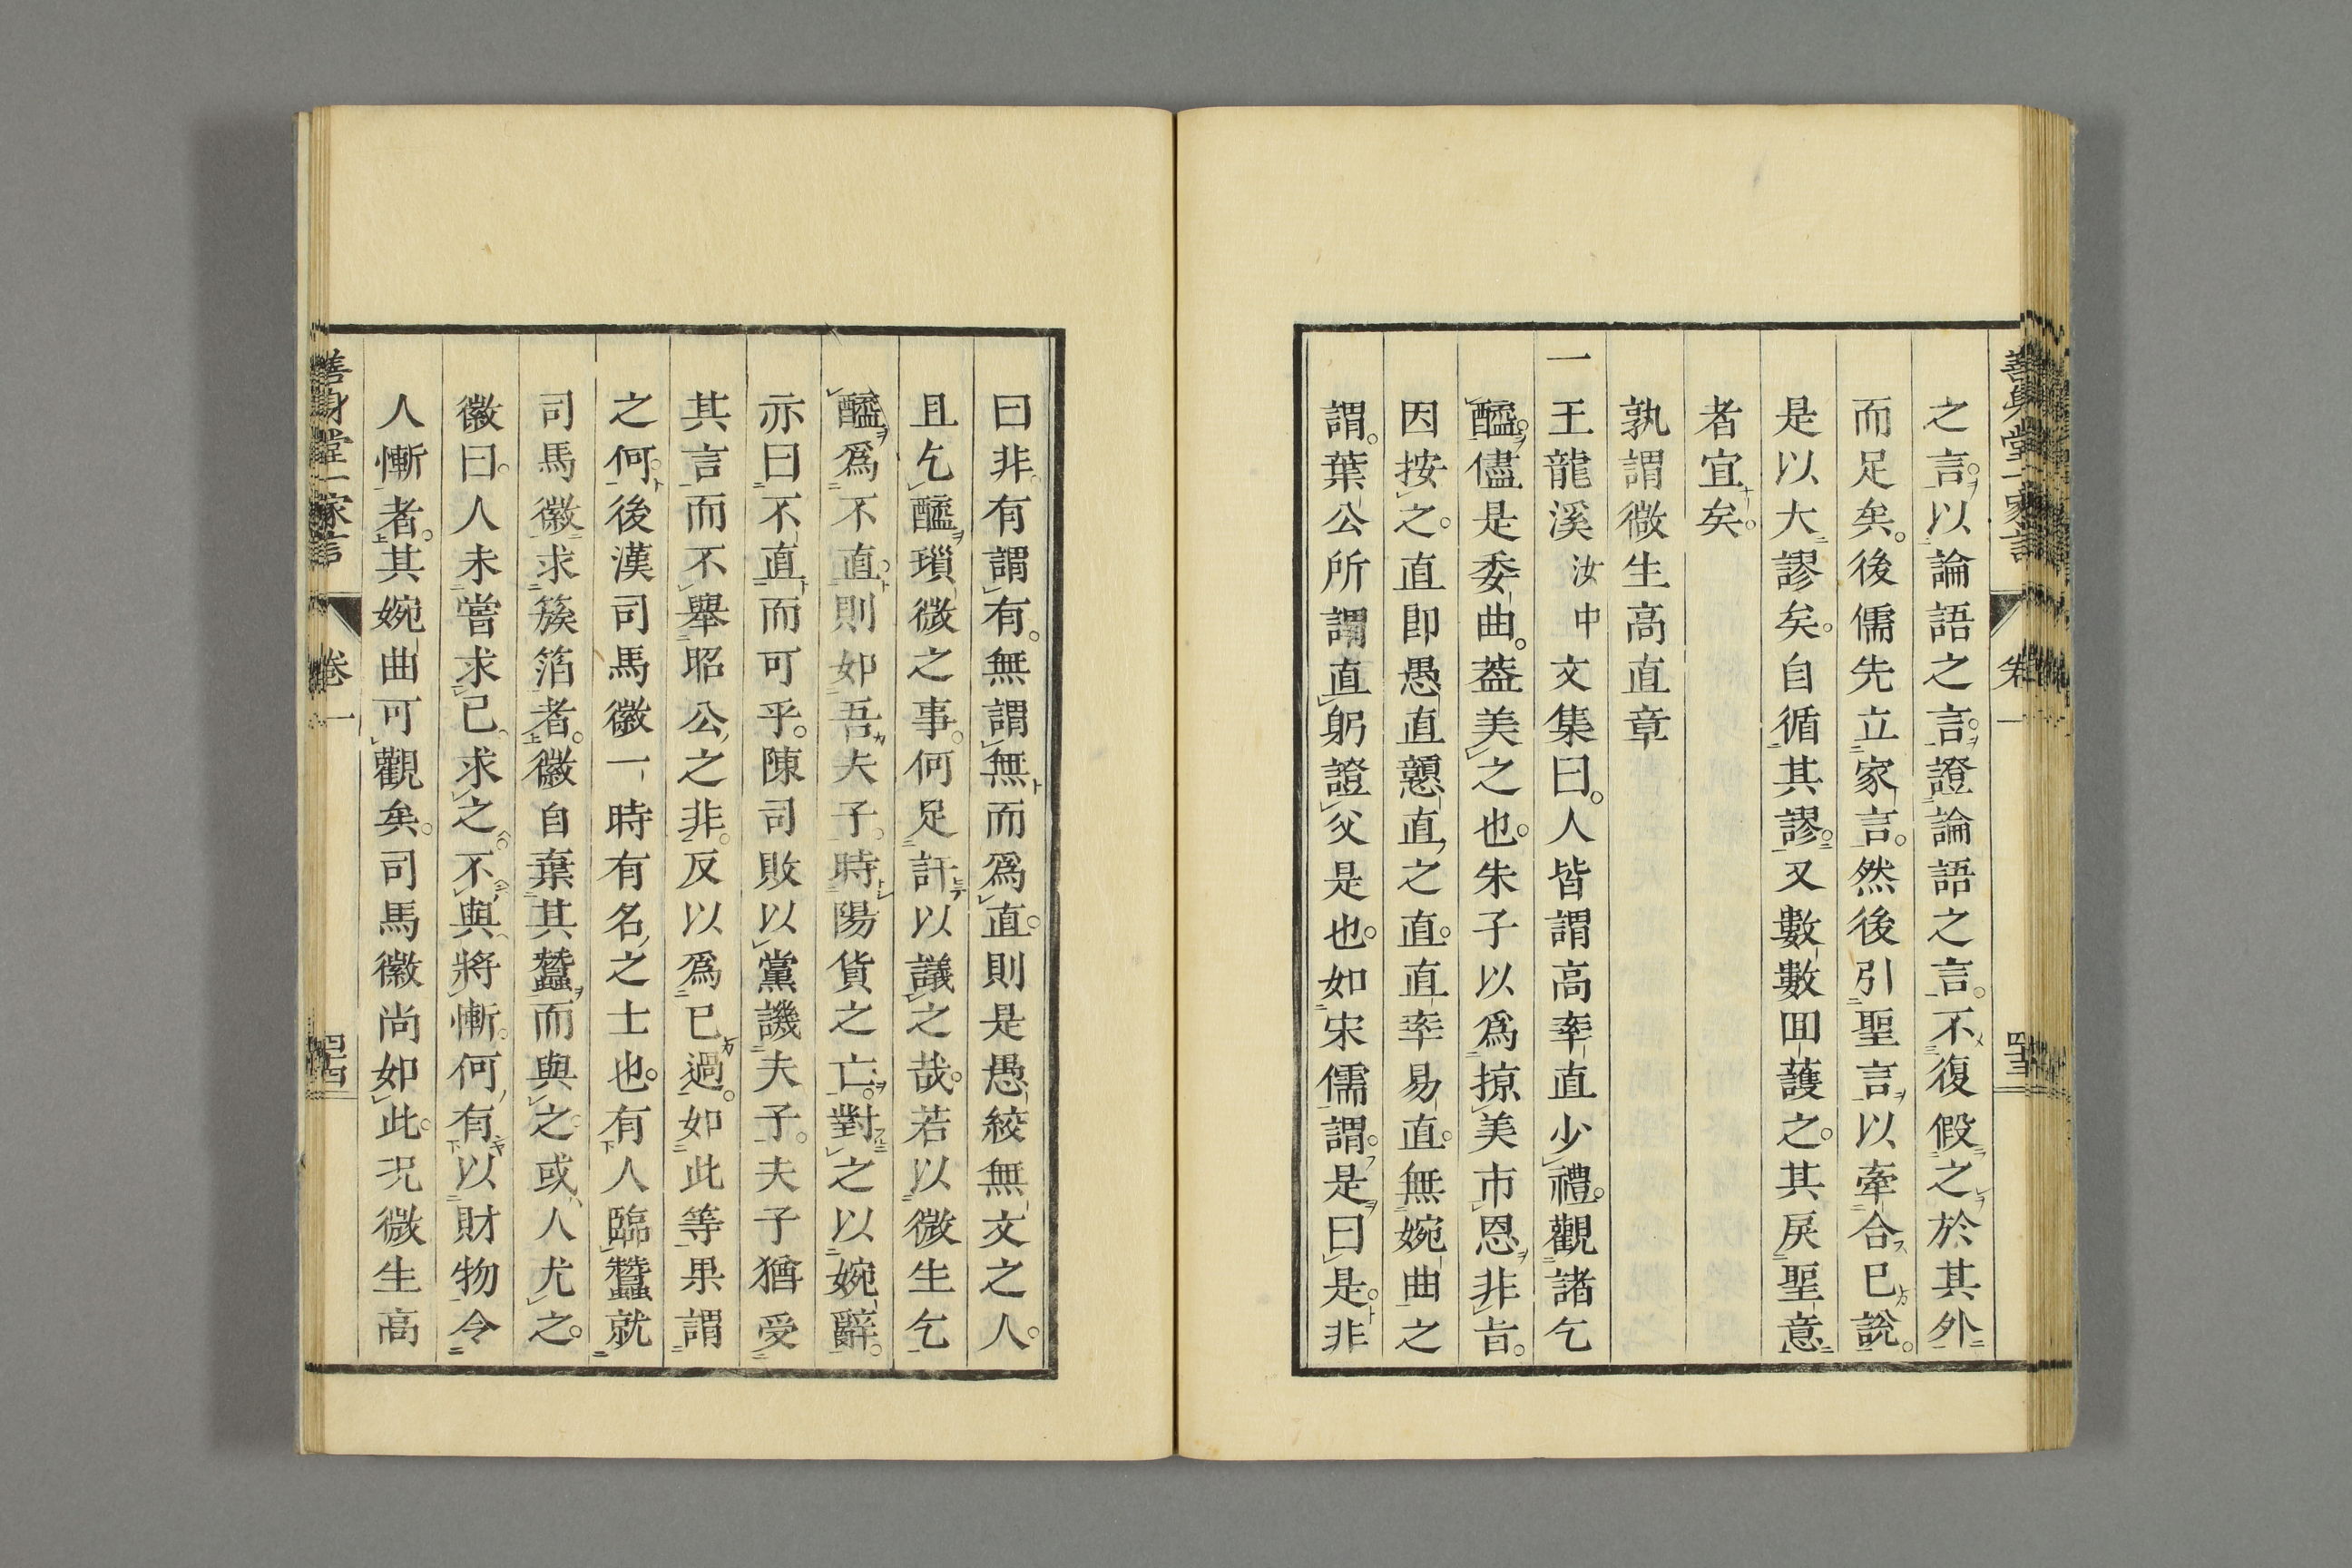 之言。以論語之言。證論語之言。不復假之於其外
而足矣。後儒先立家言。然後引聖言以牽合己說。
是以大謬矣。自循其謬。又數數回護之。其戾聖意
者宜矣。
孰謂微生高直章
一王龍溪汝中文集曰。人皆謂高率直少禮。觀諸乞
醯。儘是委曲。蓋美之也。朱子以爲掠美市恩非旨。
因按之。直即愚直戇直之直。直率易直。無婉曲之
謂。葉公所謂直躬證父是也。如宋儒謂。是曰是。非
曰非。有謂有。無謂無而爲直。則是愚絞無文之人。
且乞醯瑣微之事。何足訐以議之哉。若以微生乞
醯爲不直。則如吾夫子。時陽貨之亡。對之以婉辭。
亦曰不直而可乎。陳司敗以黨譏夫子。夫子猶受
其言而不舉昭公之非。反以爲己過。如此等果謂
之何。後漢司馬徽一時有名之士也。有人臨蠶就
司馬徽求簇箔者。徽自棄其蠶而與之。或人尤之。
徽曰。人未嘗求己。求之不與將慚。何有以財物令
人慚者。其婉曲可觀矣。司馬徽尚如此。況微生高
善身堂一家言 卷一